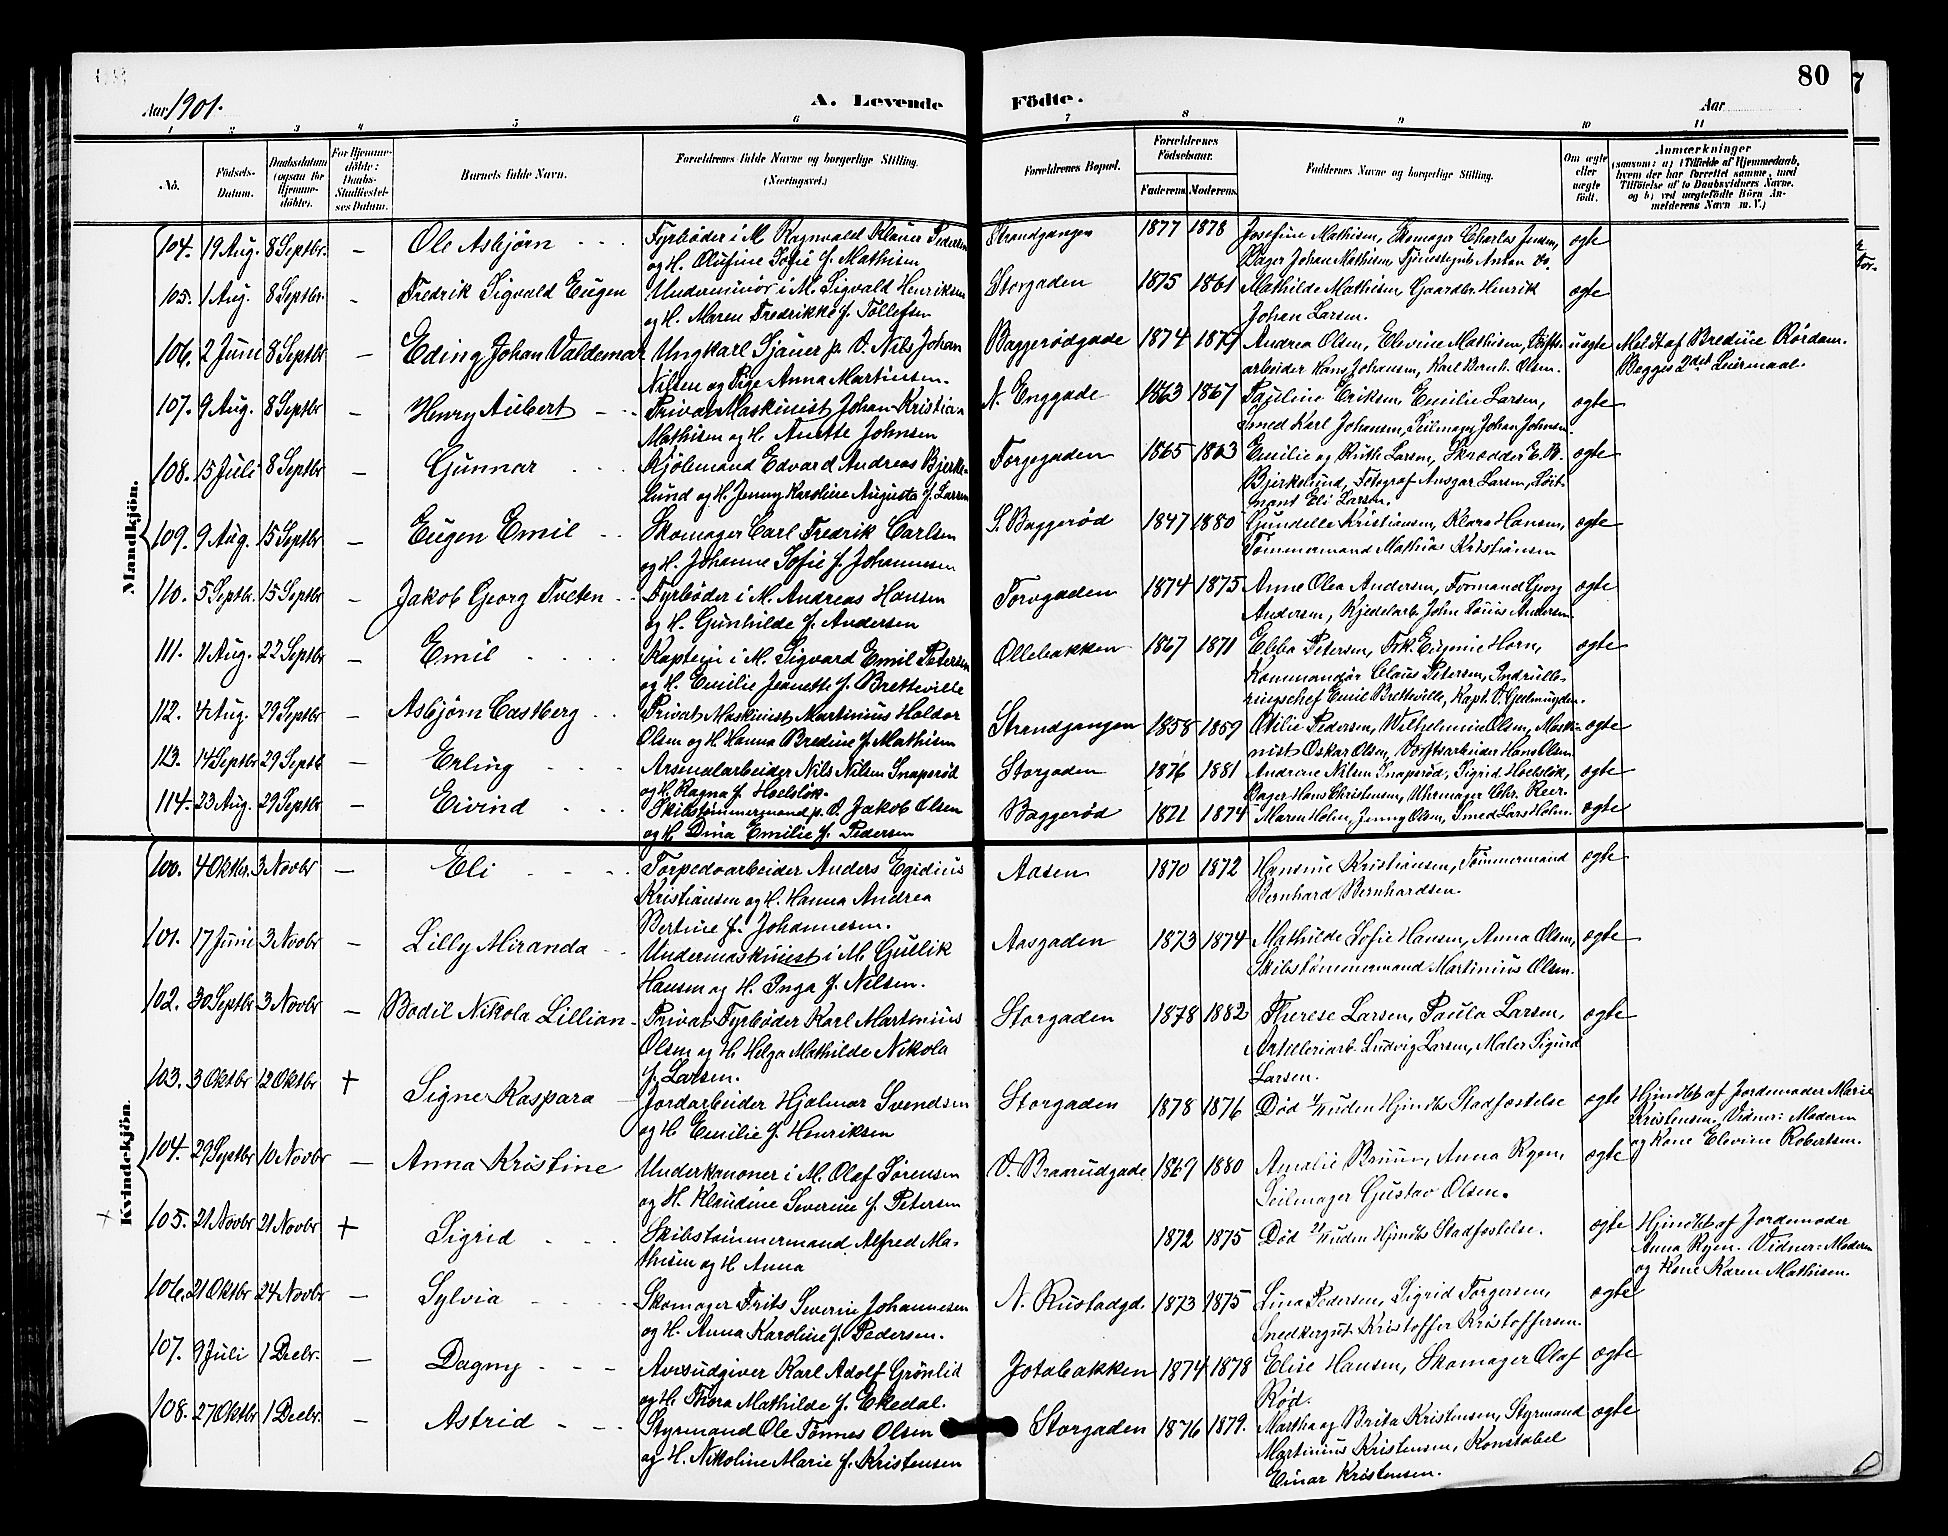 80
Aar 1901.
A. Levende Födte.
Aar
1 2 3 4 5 6 7 8 9 10 11
No.
Födsels-Datum.
Daabsdatum (ogsaa for Hjemme-döbte).
For Hjemme-döbte: Daabs-Stadfæstel-ses Datum.
Barnets fulde Navn.
Forældrenes fulde Navne og borgerlige Stilling. (Næringsvei.)
Forældrenes Bopæl.
Forældrenes Födselsaar.
Faderens. Moderens.
Faddernes Navne og borgerlige Stilling.
Om ægte eller uægte födt.
Anmærkninger
(saasom: a) i Tilfælde af Hjemmedaab, hvem der har forrettet samme, med Tilföielse af to Daabsvidners Navne, og b) ved uægtefödte Börn An-melderens Navn m. V.)
Mandkjön.
104. 19 Aug. 8 Septbr. – Ole Asbjørn Fyrbøder i M. Ragnvald Klauer Pedersen Strandgangen 1877 1878 Josefine Mathisen, Skomager Charles Jensen, ægte
og H. Olufine Sofie f. Mathisen Bager Johan Mathisen, Tjenestegut Anton do.
105. 1 Aug. 8 Septbr. – Fredrik Sigvald Eugen Underminør i M. Sigvald Henriksen Storgaden 1875 1861 Mathilde Mathisen, Gaardbr. Henrik ægte
og H. Maren Fredrikke f. Tollefsen Johan Larsen.
106. 2 Juni 8 Septbr – Eding Johan Valdemar Ungkarl Sjauer p. V. Nils Johan Baggerødgade 1874 1877 Andrea Olsen, Elevine Mathisen, uægte Meldt af Bredine Rördam.
Nilsen og Pige Anna Martinsen. arbeider Hans Johansen, Karl Bernh. Olsen. Begges 2det Leiermaal.
107. 9 Aug. 8 Septbr – Henry Aubert Privat Maskinist Johan Kristian N. Enggade 1863 1867 Pauline Eriksen, Emilie Larsen, ægte
Mathisen og H. Anette Johnsen Smed Karl Johansen, Seilmager Johan Johnsen.
108. 15 Juli 8 Septbr – Gunnar Kjölemand Edvard Andreas Bjerke- Torvegaden 1865 1863 Emilie og Ruth Larsen, Skrædder E. B. ægte
lund og H. Jenny Karoline Augusta f. Larsen Bjerkelund, Fotograf Ansgar Larsen, Löit-
nant Eli Larsen.
109. 9 Aug. 15 Septbr – Eugen Emil Skomager Carl Fredrik Carlsen S. Baggerød 1847 1880 Gundelle Kristiansen, Klara Hansen, ægte
og H. Johanne Sofie f. Johannesen Tömmermand Mathias Kristiansen
110. 5 Septbr. 15 Septbr – Jakob Georg Tveten Fyrbøder i M. Andreas Hansen Torvgaden 1874 1875 Anne Olea Andersen, Formand Georg ægte
og H. Gunhilde f. Andersen Andersen, Kjedelarb. John Louis Andersen
111. 11 Aug. 22 Septbr – Emil Kaptein i M. Sigvard Emil Petersen Ollebakken 1867 1871 Ebba Petersen, Frk. Eugenie Horn, ægte
og H. Emilie Jeanette f. Bretteville Kommandør Claus Petersen, Indrulle-
ringschef Emil Bretteville, Kapt. V. Gjelmuyden.
112. 4 Aug. 29 Septbr – Asbjørn Castberg Privat Maskinist Martinius Holdor Strandgangen 1858 1859 Otilie Pedersen, Wilhelmine Olsen, Maski- ægte
Olsen og H. Hanna Bredine f. Mathisen nist Oskar Olsen, Værftsarbeider Hans Olsen
113. 14 Septbr 29 Septb – Erling Arsenalarbeider Nils Nilsen Snaperöd Storgaden 1876 1881 Andrene Nilsen Snaperød, Sigrid Hoelsløk, ægte
og H. Ragna f. Hoelsløk. Bager Hans Christensen, Uhrmager Chr. Reer.
114. 23 Aug. 29 Septbr – Eivind Skibstömmermand p. V. Jakob Olsen Baggerød 1871 1874 Maren Holm, Jenny Olsen, Smed Lars Holm. ægte
og H. Dina Emilie f. Pedersen
Kvindekjön.
100. 4 Oktbr. 3 Novbr – Eli Torpedoarbeider Anders Egidius Aasen 1870 1872 Hansine Kristiansen, Tömmermand ægte
Kristiansen og H. Hanna Andrea Bernhard Bernhardsen.
Bertine f. Johannesen.
101. 17 Juni 3 Novbr – Lilly Miranda Undermaskinist i M. Gullik Aasgaden 1873 1874 Mathilde Sofie Hansen, Anna Olsen, ægte
Hansen og H. Inga f. Nilsen. Skibstømmermand Martinius Olsen.
102. 30 Septbr 3 Novbr – Bodil Nikola Lillian Privat Fyrbøder Karl Martinius Storgaden 1878 1882 Therese Larsen, Paula Larsen, ægte
Olsen og H. Helga Mathilde Nikola Artilleriarb. Ludvig Larsen, Maler Sigurd
f. Larsen. Larsen.
103. 3 Oktbr 12 Oktbr + Signe Kaspara Jordarbeider Hjalmar Svendsen Storgaden 1878 1876 Død uden Hjmdbs Stadfæstelse ægte Hjmdbt af Jordemoder Marie
og H. Emilie f. Henriksen Kristensen, Vidner: Moderen
og Kone Elevine Robertsen.
104. 29 Septbr 10 Novbr – Anna Kristine Underkanoner i M. Olaf Sørensen V. Braarudgade 1869 1880 Amalie Bruun, Anna Ryen, ægte
og H. Klaudine Severine f. Petersen Seilmager Gustav Olsen.
105. 21 Novbr 21 Novbr + Sigrid Skibstömmermand Alfred Ma- 1872 1875 Død uden Hjmdbs Stadfæstelse. ægte Hjmdbt af Jordemoder
thisen og H Anna Anna Ryen. Vidner: Moderen
og Kone Karen Mathisen.
106. 21 Oktbr 24 Novbr – Sylvia Skomager Frits Severin Johannesen N. Rustadgd. 1873 1875 Lina Pedersen, Sigrid Torgersen, ægte
og H. Anna Karoline f. Pedersen. Snedkergut Kristoffer Kristoffersen.
107. 9 Juli 1 Decbr. – Dagny Avisudgiver Karl Adolf Grönlid Jotabakken 1874 1878 Elise Hansen, Skomager Olaf ægte
og H. Thora Mathilde f. Ekedal. Rød.
108. 27 Oktbr 1 Decbr. – Astrid Styrmand Ole Tönnes Olsen Storgaden 1876 1879. Martha og Brita Kristensen, Styrmand ægte
og H. Nikoline Marie f. Kristensen Martinius Kristensen, Konstabel
Einar Kristensen.